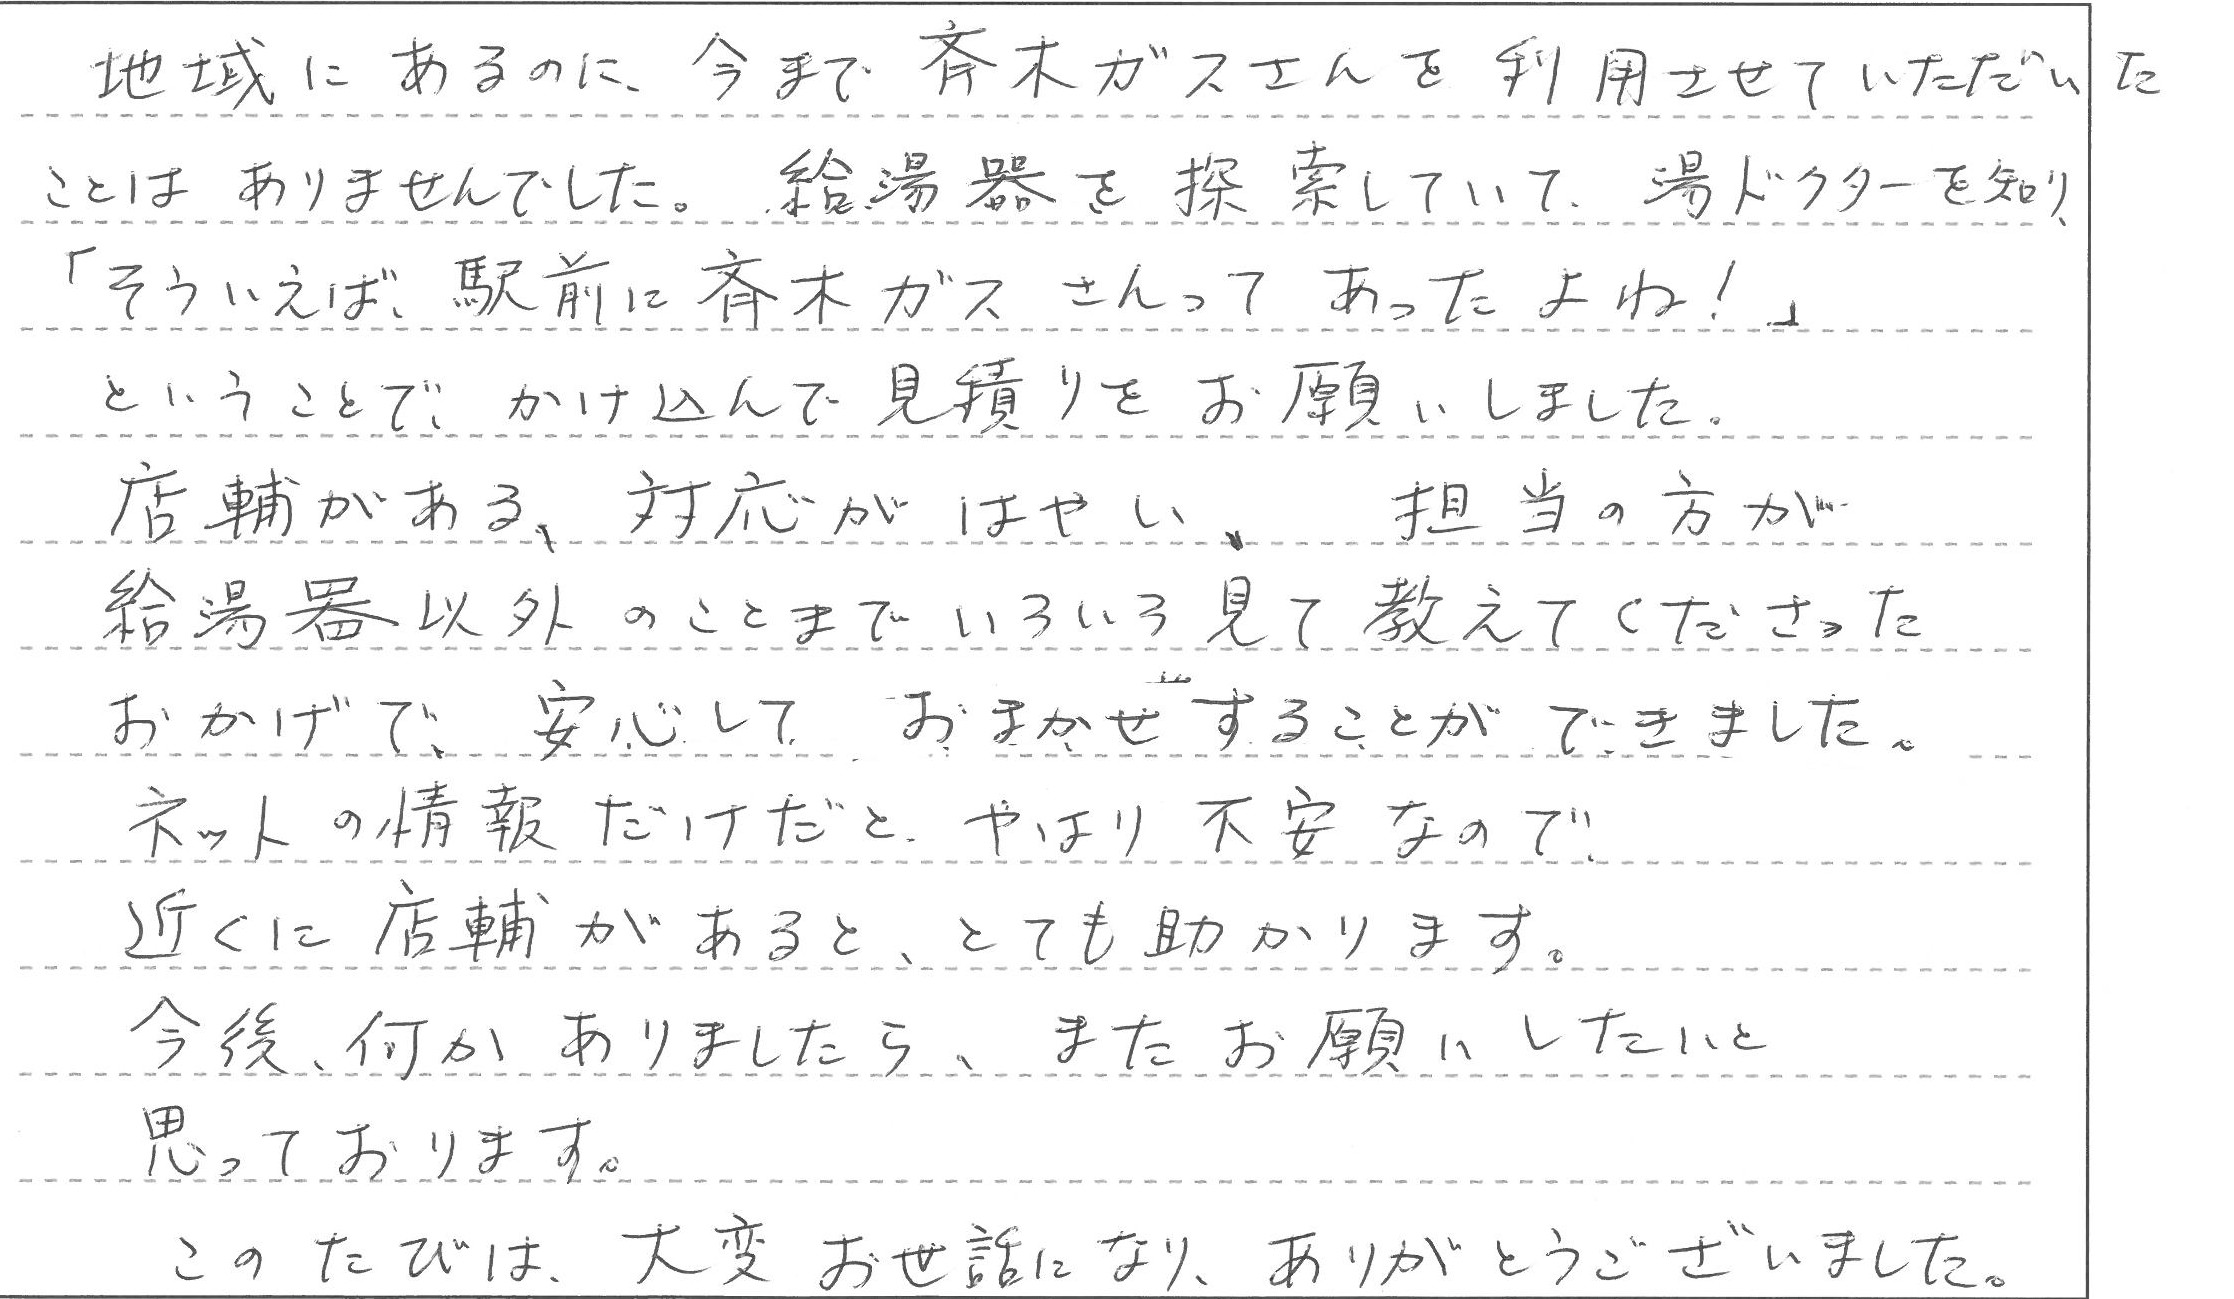 地域にあるのに、今まで斉木ガスさんを利用させていただいた
ことはありませんでした。給湯器を探索していて、湯ドクターを知り、
「そういえば、駅前に斉木ガスさんってあったよね！」
ということで、かけ込んで見積りをお願いしました。
店輔がある、対応がはやい、担当の方が
給湯器以外のことまでいろいろ見て教えてくださった
おかげで、安心しておまかせすることができました。
ネットの情報だけだと、やはり不安なので、
近くに店輔があると、とても助かります。
今後、何かありましたら、またお願いしたいと
思っております。
このたびは、大変お世話になり、ありがとうございました。